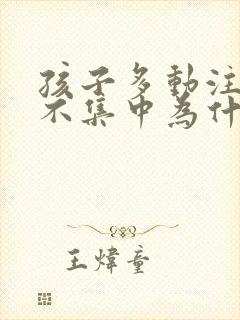 孩子多動注
不集中為什
王煒童